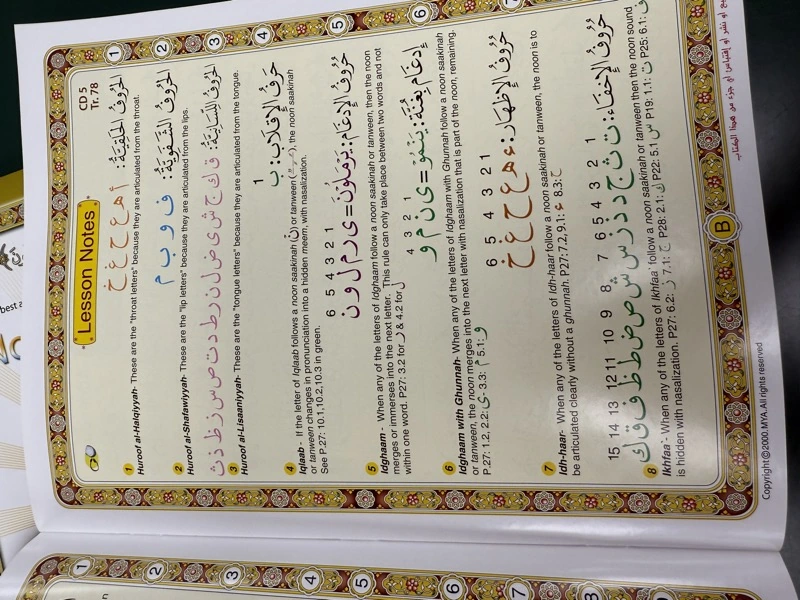 CD 5
Tr. 78
Lesson Notes
1 الحُرُوفُ الحَلْقِيَّةُ: أ هـ ع ح غ خ
Huroof al-Halqiyyah- These are the "throat letters" because they are articulated from the throat.
2 الحُرُوفُ الشَّفَوِيَّةُ: ف و ب م
Huroof al-Shafawiyyah- These are the "lip letters" because they are articulated from the lips.
3 الحُرُوفُ اللِّسَانِيَّةُ: ق ك ج ش ي ض ل ن ر ط د ت ص س ز ظ ذ ث
Huroof al-Lisaaniyyah- These are the "tongue letters" because they are articulated from the tongue.
4 حَرفُ الإِقلَابُ: ب
1
Iqlaab - If the letter of Iqlaab follows a noon saakinah (نْ) or tanween, the noon saakinah
or tanween changes in pronunciation into a hidden meem, with nasalization.
See P.27: 10.1,10.2,10.3 in green.
5 حُرُوفُ الإِدغَامُ: يَرْمَلُوْنَ = ى ر م ل و ن
6 5 4 3 2 1
Idghaam - When any of the letters of Idghaam follow a noon saakinah or tanween, then the noon
merges or immerses into the next letter. This rule can only take place between two words and not
within one word. P27: 3.2 for ر & 4.2 for ل
6 إِدغَام بِغُنَّة: يَنْمُوْ = ى ن م و
4 3 2 1
Idghaam with Ghunnah- When any of the letters of Idghaam with Ghunnah follow a noon saakinah
or tanween, the noon merges into the next letter with nasalization that is part of the noon, remaining.
P.27: 1.2, 2.2: ى- 3.3: م 5.1: و
7 حُرُوفُ الإِظهَار: ء هـ ع ح غ خ
6 5 4 3 2 1
Idh-haar- When any of the letters of Idh-haar follow a noon saakinah or tanween, the noon is to
be articulated clearly without a ghunnah. P27: 7.2, 9.1: ء 8.3: ح
حُرُوفُ الإِخفَاء: ت ث ج د ذ ز س ش ص ض ط ظ ف ق ك
15 14 13 12 11 10 9 8 7 6 5 4 3 2 1
8 Ikhfaa'- When any of the letters of Ikhfaa' follow a noon saakinah or tanween then the noon sound
is hidden with nasalization. P27: 6.2: ز 7.1: ج P28: 2.1: ك P22: 5.1 س P19: 1.1: ت P25: 6.1: ف
B
Copyright©2000.MYA.All rights reserved
1
2
3
4
5
6
7
8